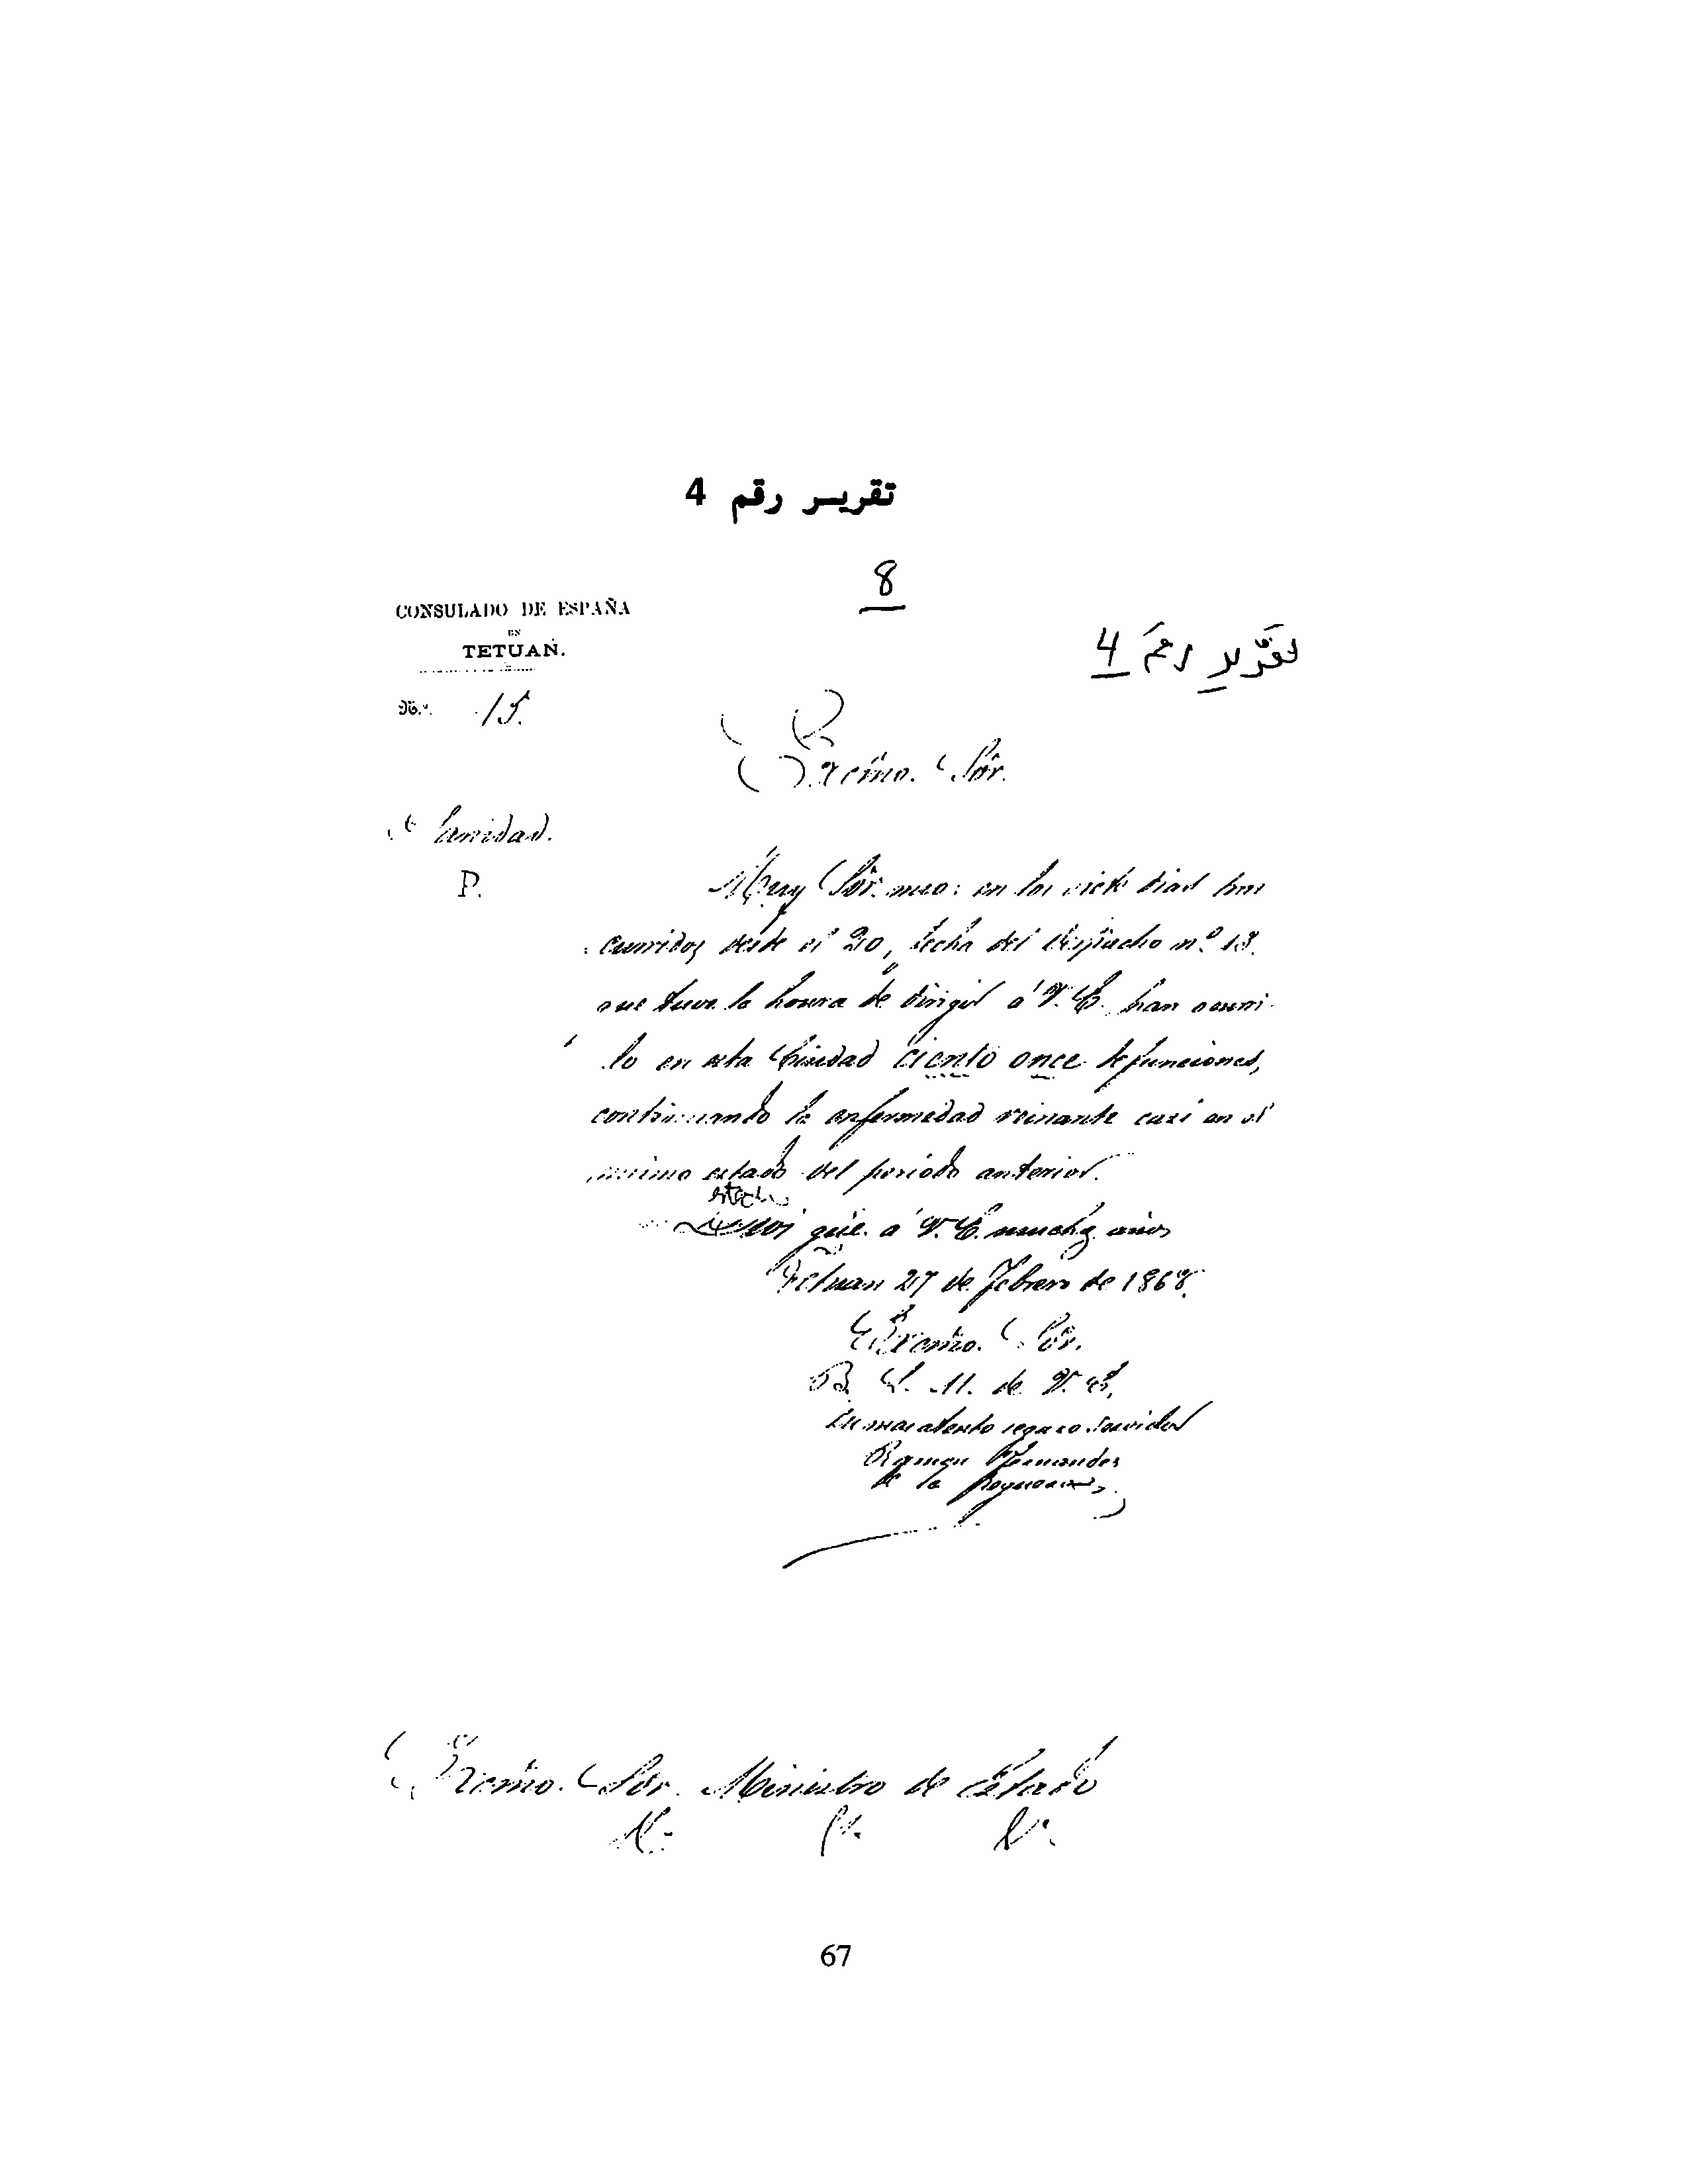 تقرير رقم 4
8
CONSULADO DE ESPAÑA
EN
TETUAN.
تقرير رقم 4
N.º 15.
Excmo. Sôr.
Sanidad.
P.
Muy Sôr. mio: en los siete dias tras
curridos desde el 20, fecha del despacho n.º 13.
que tuve la honra de dirigir á V. E. han ocurri
do en esta Ciudad ciento once defunciones,
continuando la enfermedad reinante casi en el
mismo estado del periodo anterior.
Dios gûe. á V. E. muchos años
Tetuan 27 de Febrero de 1868.
Excmo. Sôr.
B. L. M. de V. E.
Su mas atento seguro servidor
Ramon Fernandez
de la
Excmo. Sôr. Ministro de Estado
67